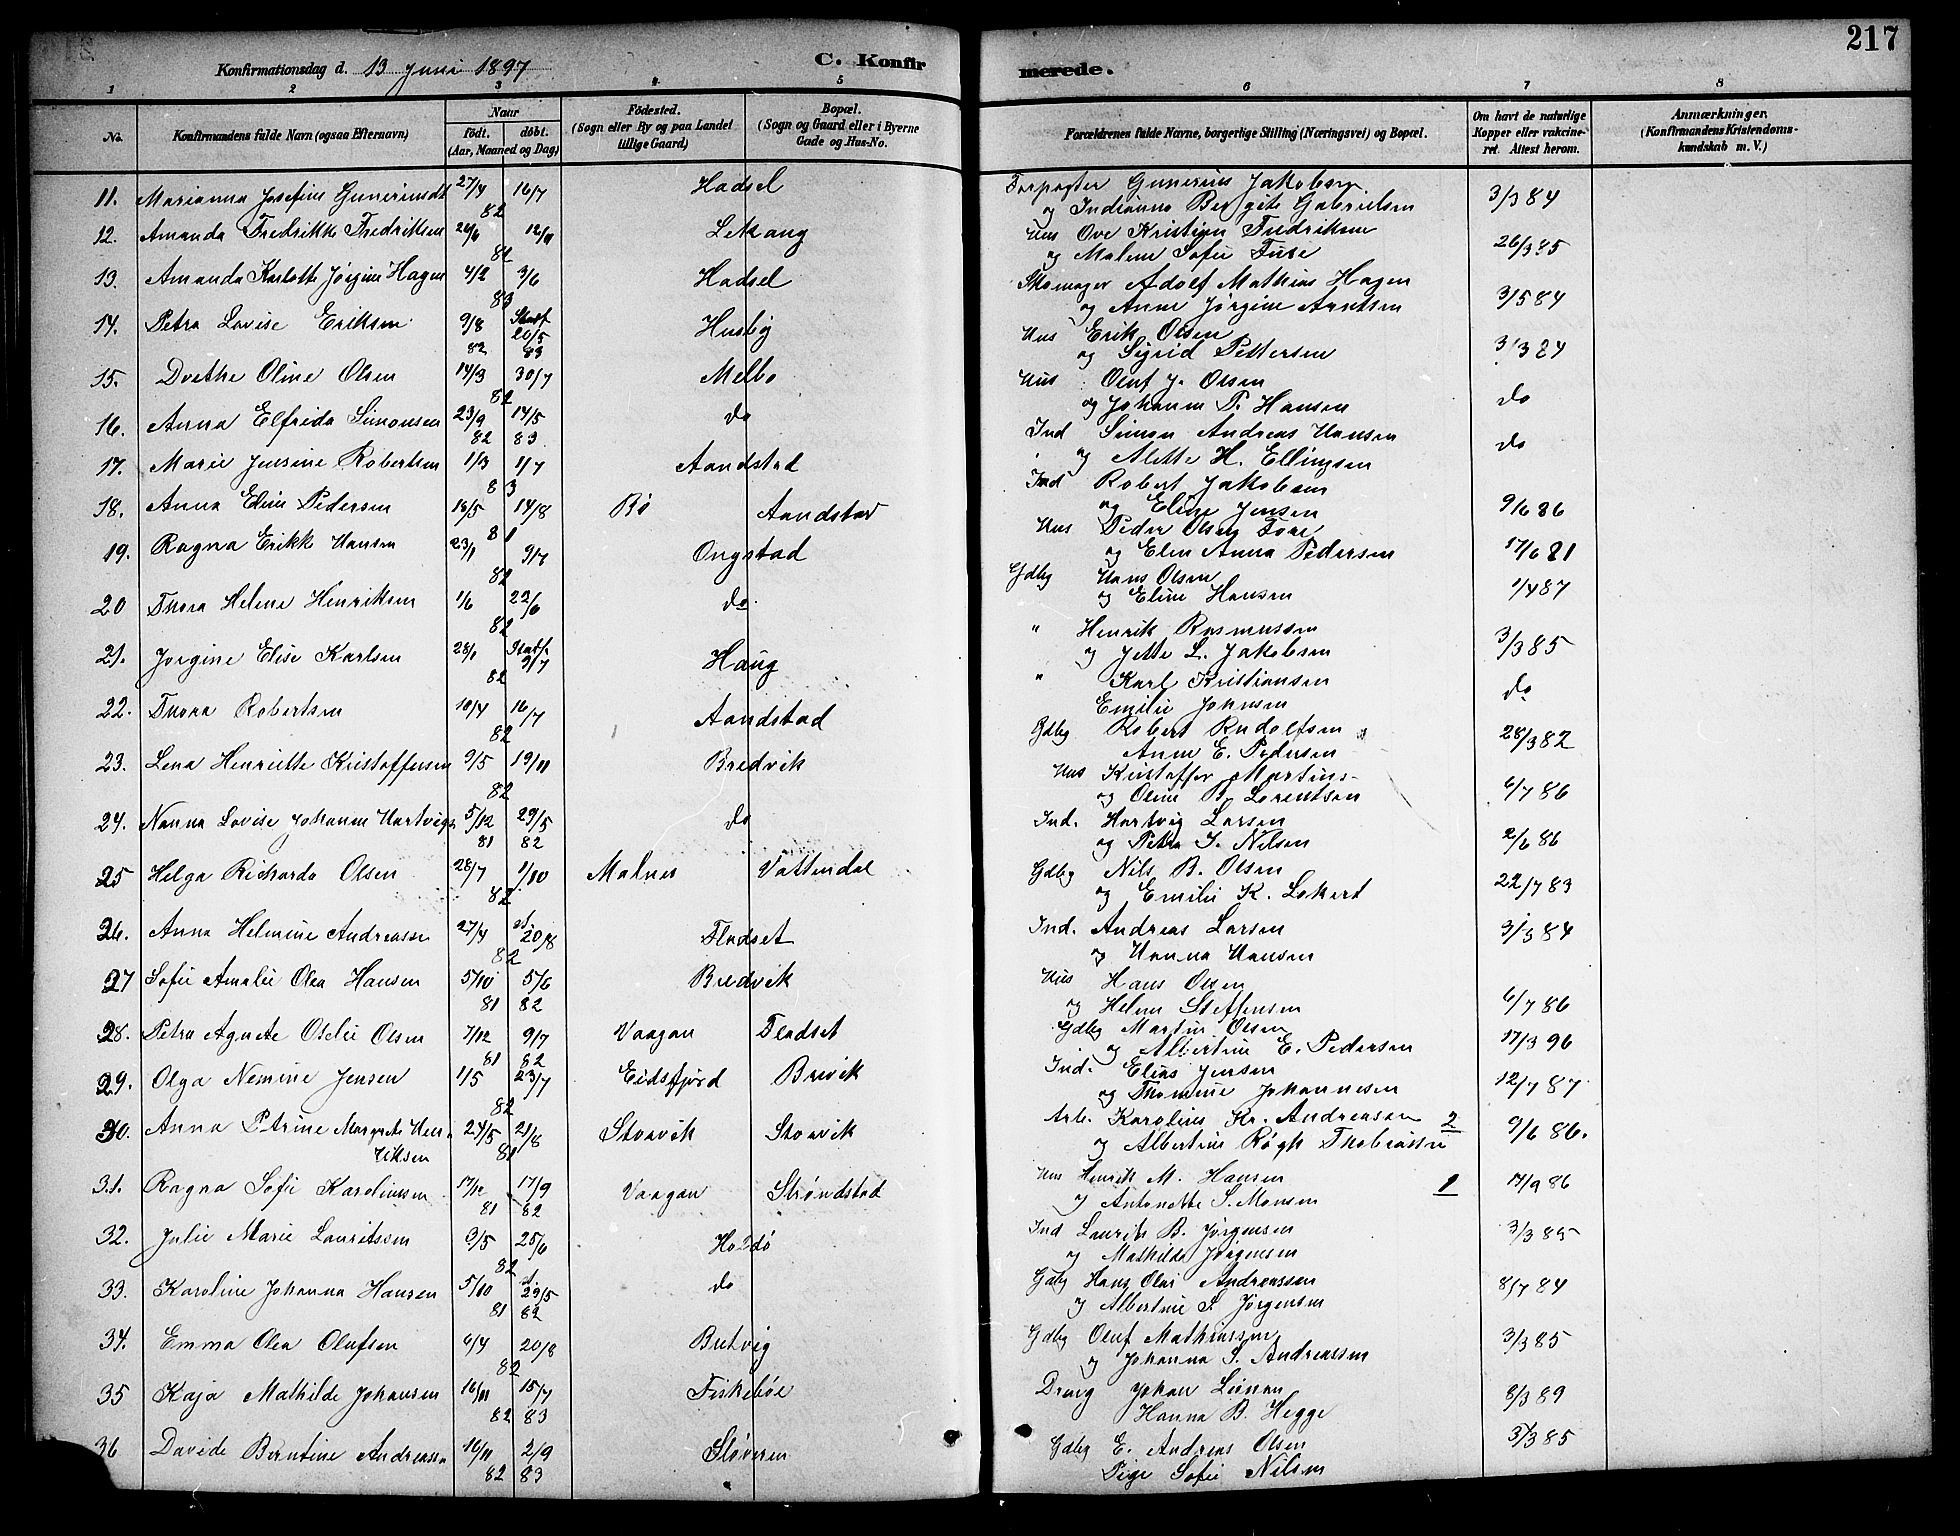 217
Konfirmationsdag d. 13 Juni 1897
C. Konfirmerede.
1 2 3 4 5 6 7 8
No.
Konfirmandens fulde Navn (ogsaa Efternavn)
Naar
født. døbt.
(Aar, Maaned og Dag)
Fødested.
(Sogn eller By og paa Landet
tillige Gaard)
Bopæl.
(Sogn og Gaard eller i Byerne
Gade og Hus-No.
Forældrenes fulde Navne, borgerlige Stilling (Næringsvei) og Bopæl.
Om havt de naturlige
Kopper eller vakcine-
ret. Attest herom.
Anmærkninger.
(Konfirmandens Kristendoms-
kundskab m. V.)
11. Marianna Josefine Gunerius 27/4 82 16/7 Hadsel Forpagter Gunerius Jakobsen 3/3 84
og Indianna Bergite Gabrielsen
12. Amanda Fredrikke Fredriksen 82 Lekang Hus Ove Kristian Fredriksen 26/3 85
og Malene Sofie
13. Amanda Karlotte Jørgine Hagen 4/2 83 3/6 Hadsel Skomager Adolf Mathias Hagen 3/5 84
og Anne Jørgine Arntsen
14. Petra Lovise Eriksen 9/8 82 Stadf 20/5 83 Husby Hus Erik Olsen 3/3 84
og Sigrid Pettersen
15. Dorthe Oline Olsen 14/3 82 30/7 Melbo Hus Oluf J. Olsen do
og Johanna P. Hansen
16. Anna Elfrida Simonsen 23/9 82 14/5 83 do Ind Simon Andreas Hansen do
og Alette H. Ellingsen
17. Marie Jensine Robertsen 1/3 83 1/7 Aandstad Ind Robert Jakobsen
og Eline Jensen
18. Anna Eline Pedersen 16/5 81 14/8 Bø Aandstad Hus Peder Olsen 9/6 86
og Elen Anna Pedersen
19. Ragna Erikke Hansen 23/1 82 9/7 Ongstad Gdbg Hans Olsen 17/6 81
og Eline Hansen
20 Thora Helene Henriksen 1/6 82 22/6 do. " Henrik Rasmussen 1/4 87
og Jette L. Jakobsen
21. Jørgine Elise Karlsen 28/1 82 Stadf. 9/7 Haug " Karl Kristiansen 3/3 85
Emilie Johnsen
22. Thora Robertsen 10/4 82 16/7 Aandstad Gdbg Robert Rudolfsen do
Anne E. Pedersen 28/3 82
23. Lena Henriette Kristoffersen 9/5 82 19/11 Bredvik Hus Kristoffer Martins-
og Oline B. Lorentsen 6/7 86
24. Nanna Lovise Johanna Hartvigs 5/12 81 29/5 82 do Ind. Hartvig Larsen
og Petra J. Nilsen 2/6 86
25 Helga Rickarda Olsen 28/7 82 1/10 Malnes Vottendal Gdbg Nils B. Olsen
og Emilie K. Lokert 22/7 83
26. Anna Helmine Andreasse 27/4 82 20/8 Fladset Ind. Andreas Larsen 3/3 84
og Hanna Hansen
27 Sofie Amalie Olea Hansen 5/10 81 5/6 82 Bredvik Hus Hans Olsen
og Helene Steffensen 6/7 86
28. Petra Agnete Oselie Olsen 7/12 81 9/7 82 Vaagan Fladset Gdbg Martin Olsen
og Albertine E. Pedersen 17/3 96
29. Olga Nemine Jensen 1/5 82 23/7 Eidsfjord Brevik Ind. Elias Jensen
og Thomine Johannesen 12/7 87
30. Anna Petrine Margrete Hen- 24/5 81 21/8 Storvik Storvik Arb. Karolius Kr. Andreasen 2 9/6 86.
riksen og Albertine Røgh Thobiassen
31. Ragna Sofie Karoliussen 17/12 81 17/9 82 Vaagan Strøndstad Hus Henrik M. Hansen 1 14/9 86
og Antonette S. Monsen
32. Julie Marie Lauritssen 9/5 82 25/6 Holdø Ind Laurits B. Jørgensen 3/3 85
og Mathilde Jørgensen
33. Karoline Johanna Hansen 5/10 81 29/5 82 do Gdbg Hans Olai Andreassen 8/7 84
og Albertine S. Jørgensen
34. Emma Olea Olufsen 6/4 82 20/8 Butvig Gdbg Oluf Mathiassen 3/3 85
og Johanna S. Andreassen
35 Kaja Mathilde Johansen 16/11 82 15/7 83 Fiskebøe Dreng Johan 8/3 89
Hanna B. Hegge
36 Davide Berntine Andreassen 16/11 82 2/9 83 Sløveren Gdbg E. Andreas Olsen 3/3 85
Pige Sofie Nilsen